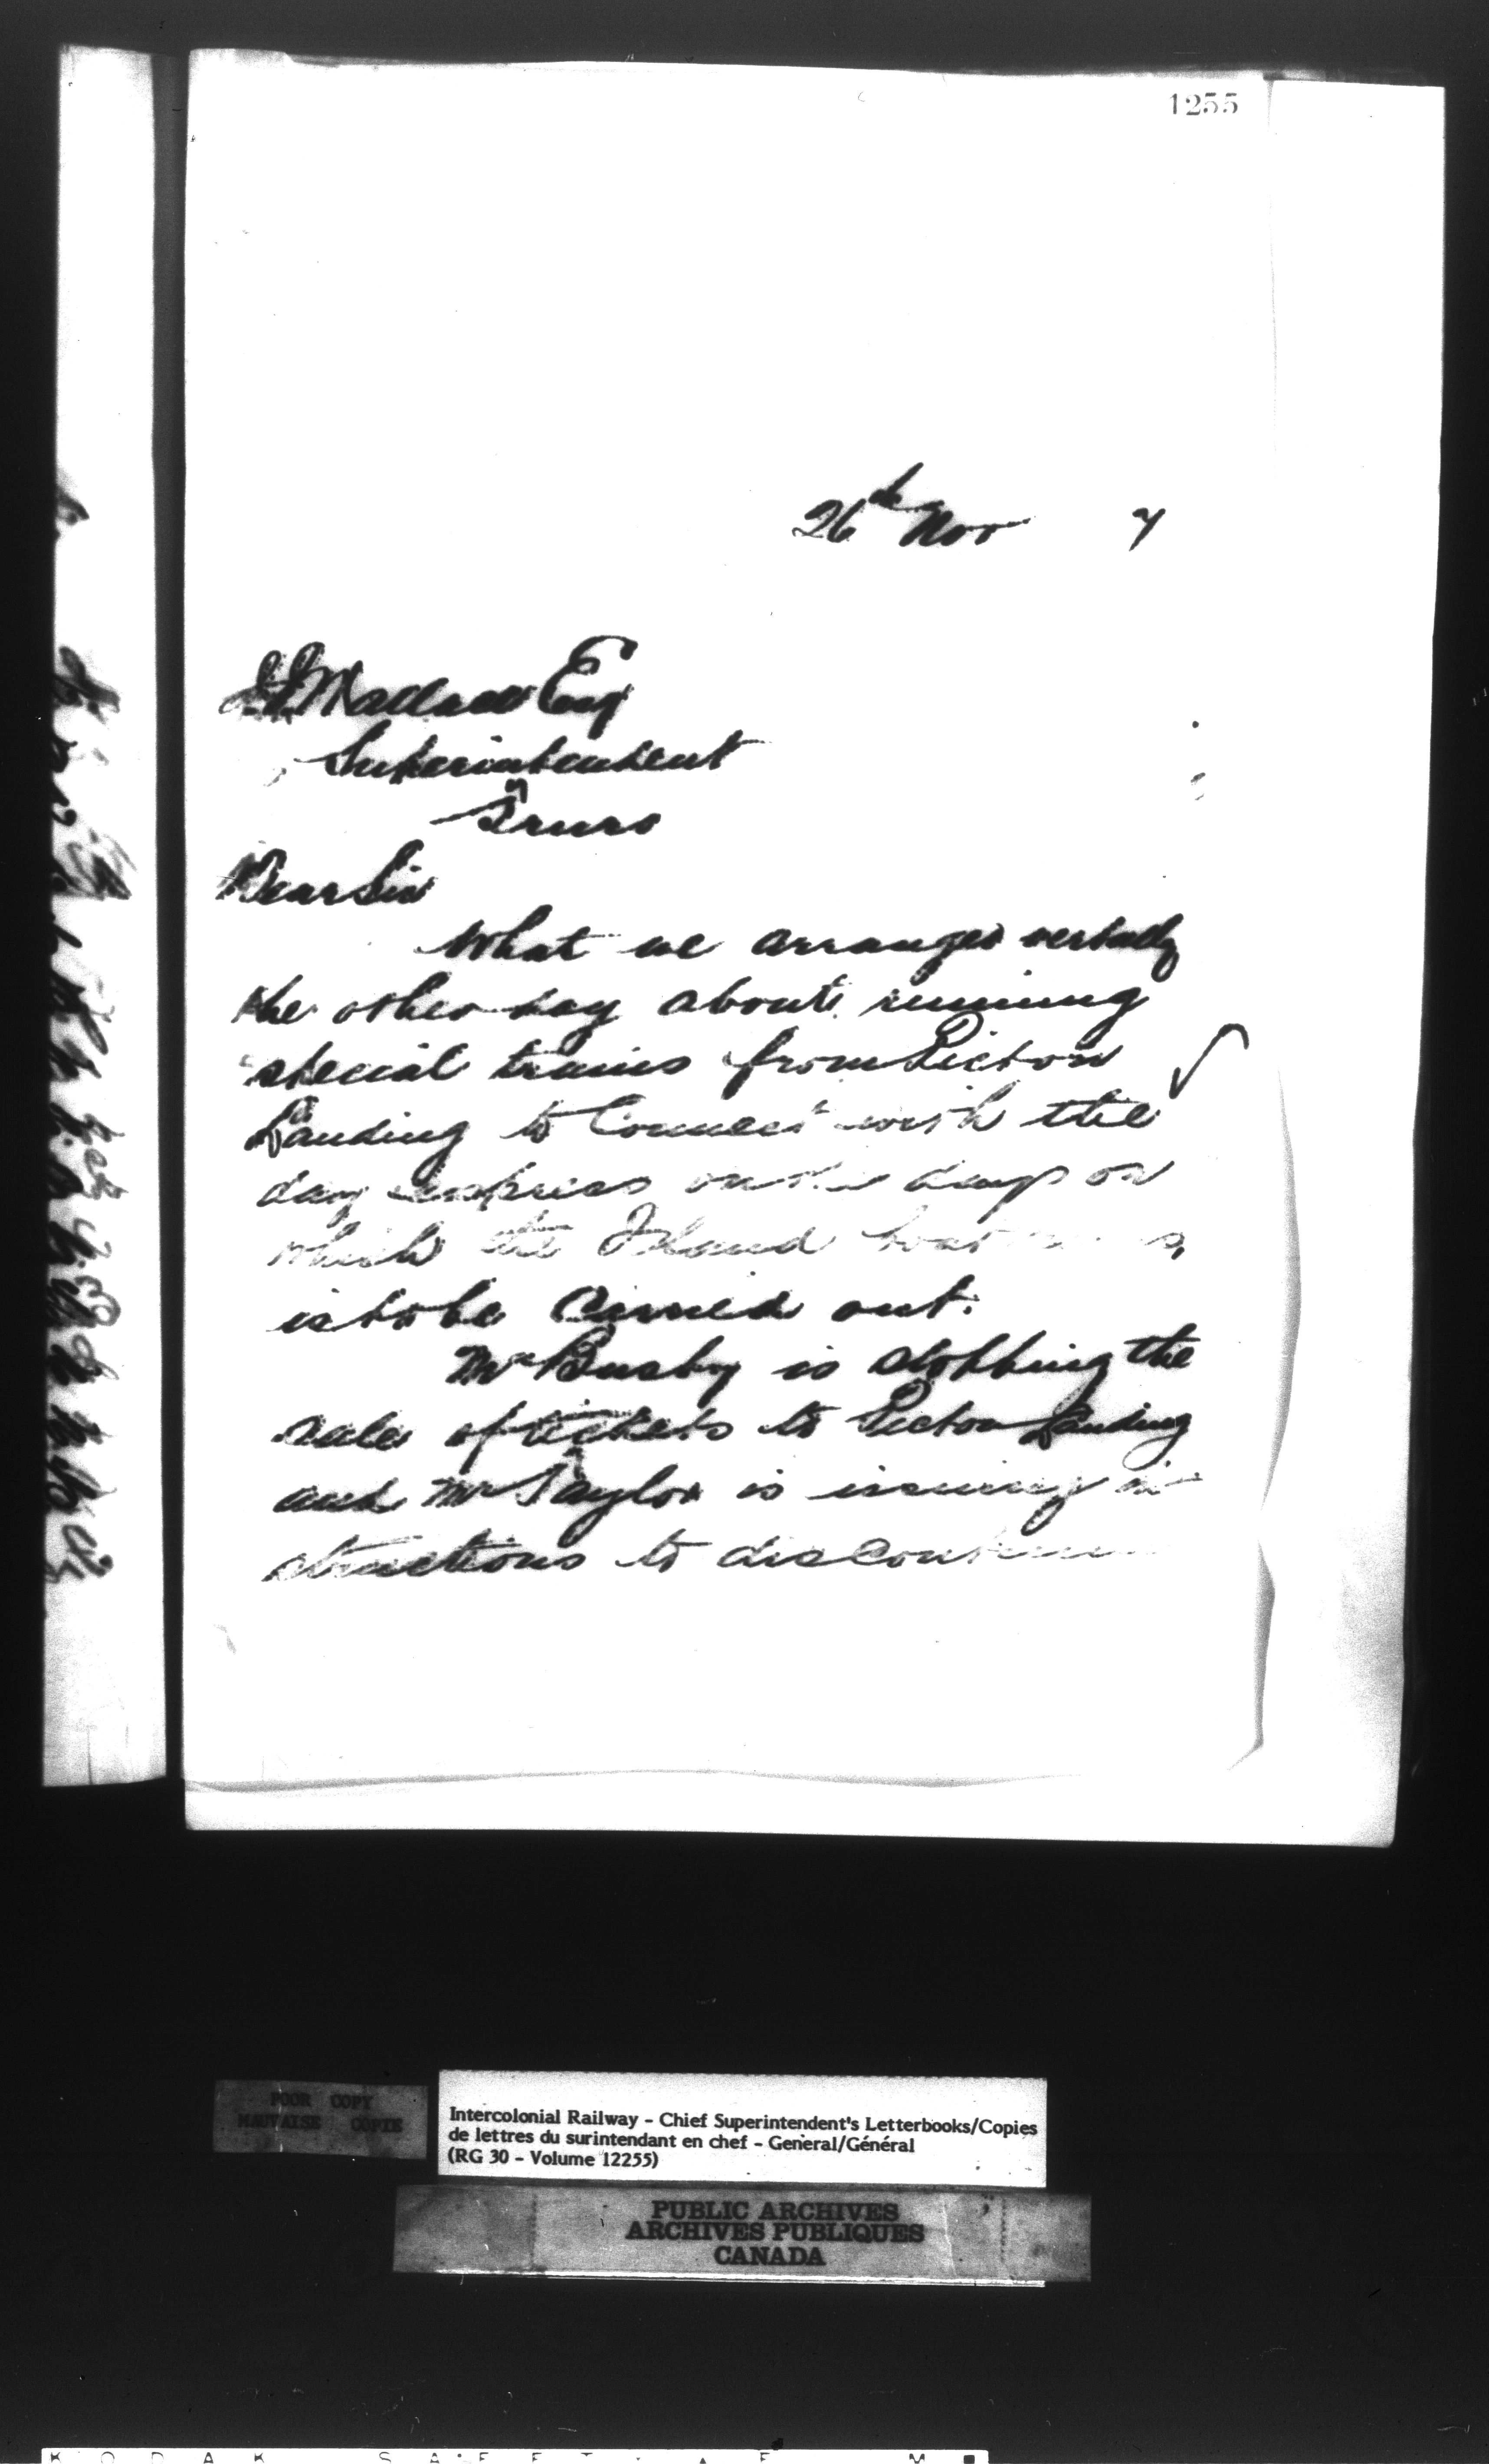 1255
26th Nov 7
J J Wallace Esq
Superintendent
Truro
Dear Sir
What we arranged verbally
the other day about running
special trains from Pictou
Landing to Connect with the
day express on the days on
which the Island boat
is to be Carried out.
Mr Busby is stopping the
sale of tickets to Pictou Landing
and Mr Taylor is issuing in
structions to discontinue
POOR COPY
MAUVAISE COPIE
Intercolonial Railway - Chief Superintendent's Letterbooks/Copies
de lettres du surintendant en chef - General/Général
(RG 30 - Volume 12255)
PUBLIC ARCHIVES
ARCHIVES PUBLIQUES
CANADA
KODAK SAFETY